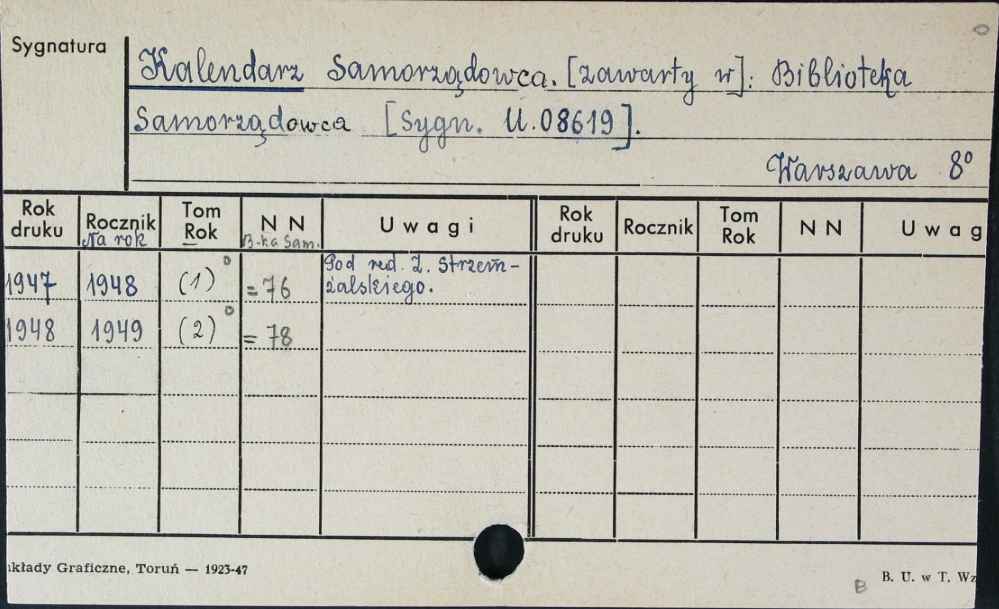 Sygnatura
Kalendarz Samorządowca. [zawarty w]: Biblioteka
Samorządowca [Sygn. U.08619].
Warszawa 8°
Rok druku Rocznik Na rok Tom Rok N N B-ka Sam. Uwagi Rok druku Rocznik Tom Rok N N Uwag
1947 1948 (1)° = 76 Pod red. Z. Strzem-
żalskiego.
1948 1949 (2)° = 78
kłady Graficzne, Toruń — 1923-47
B B. U. w T. Wz